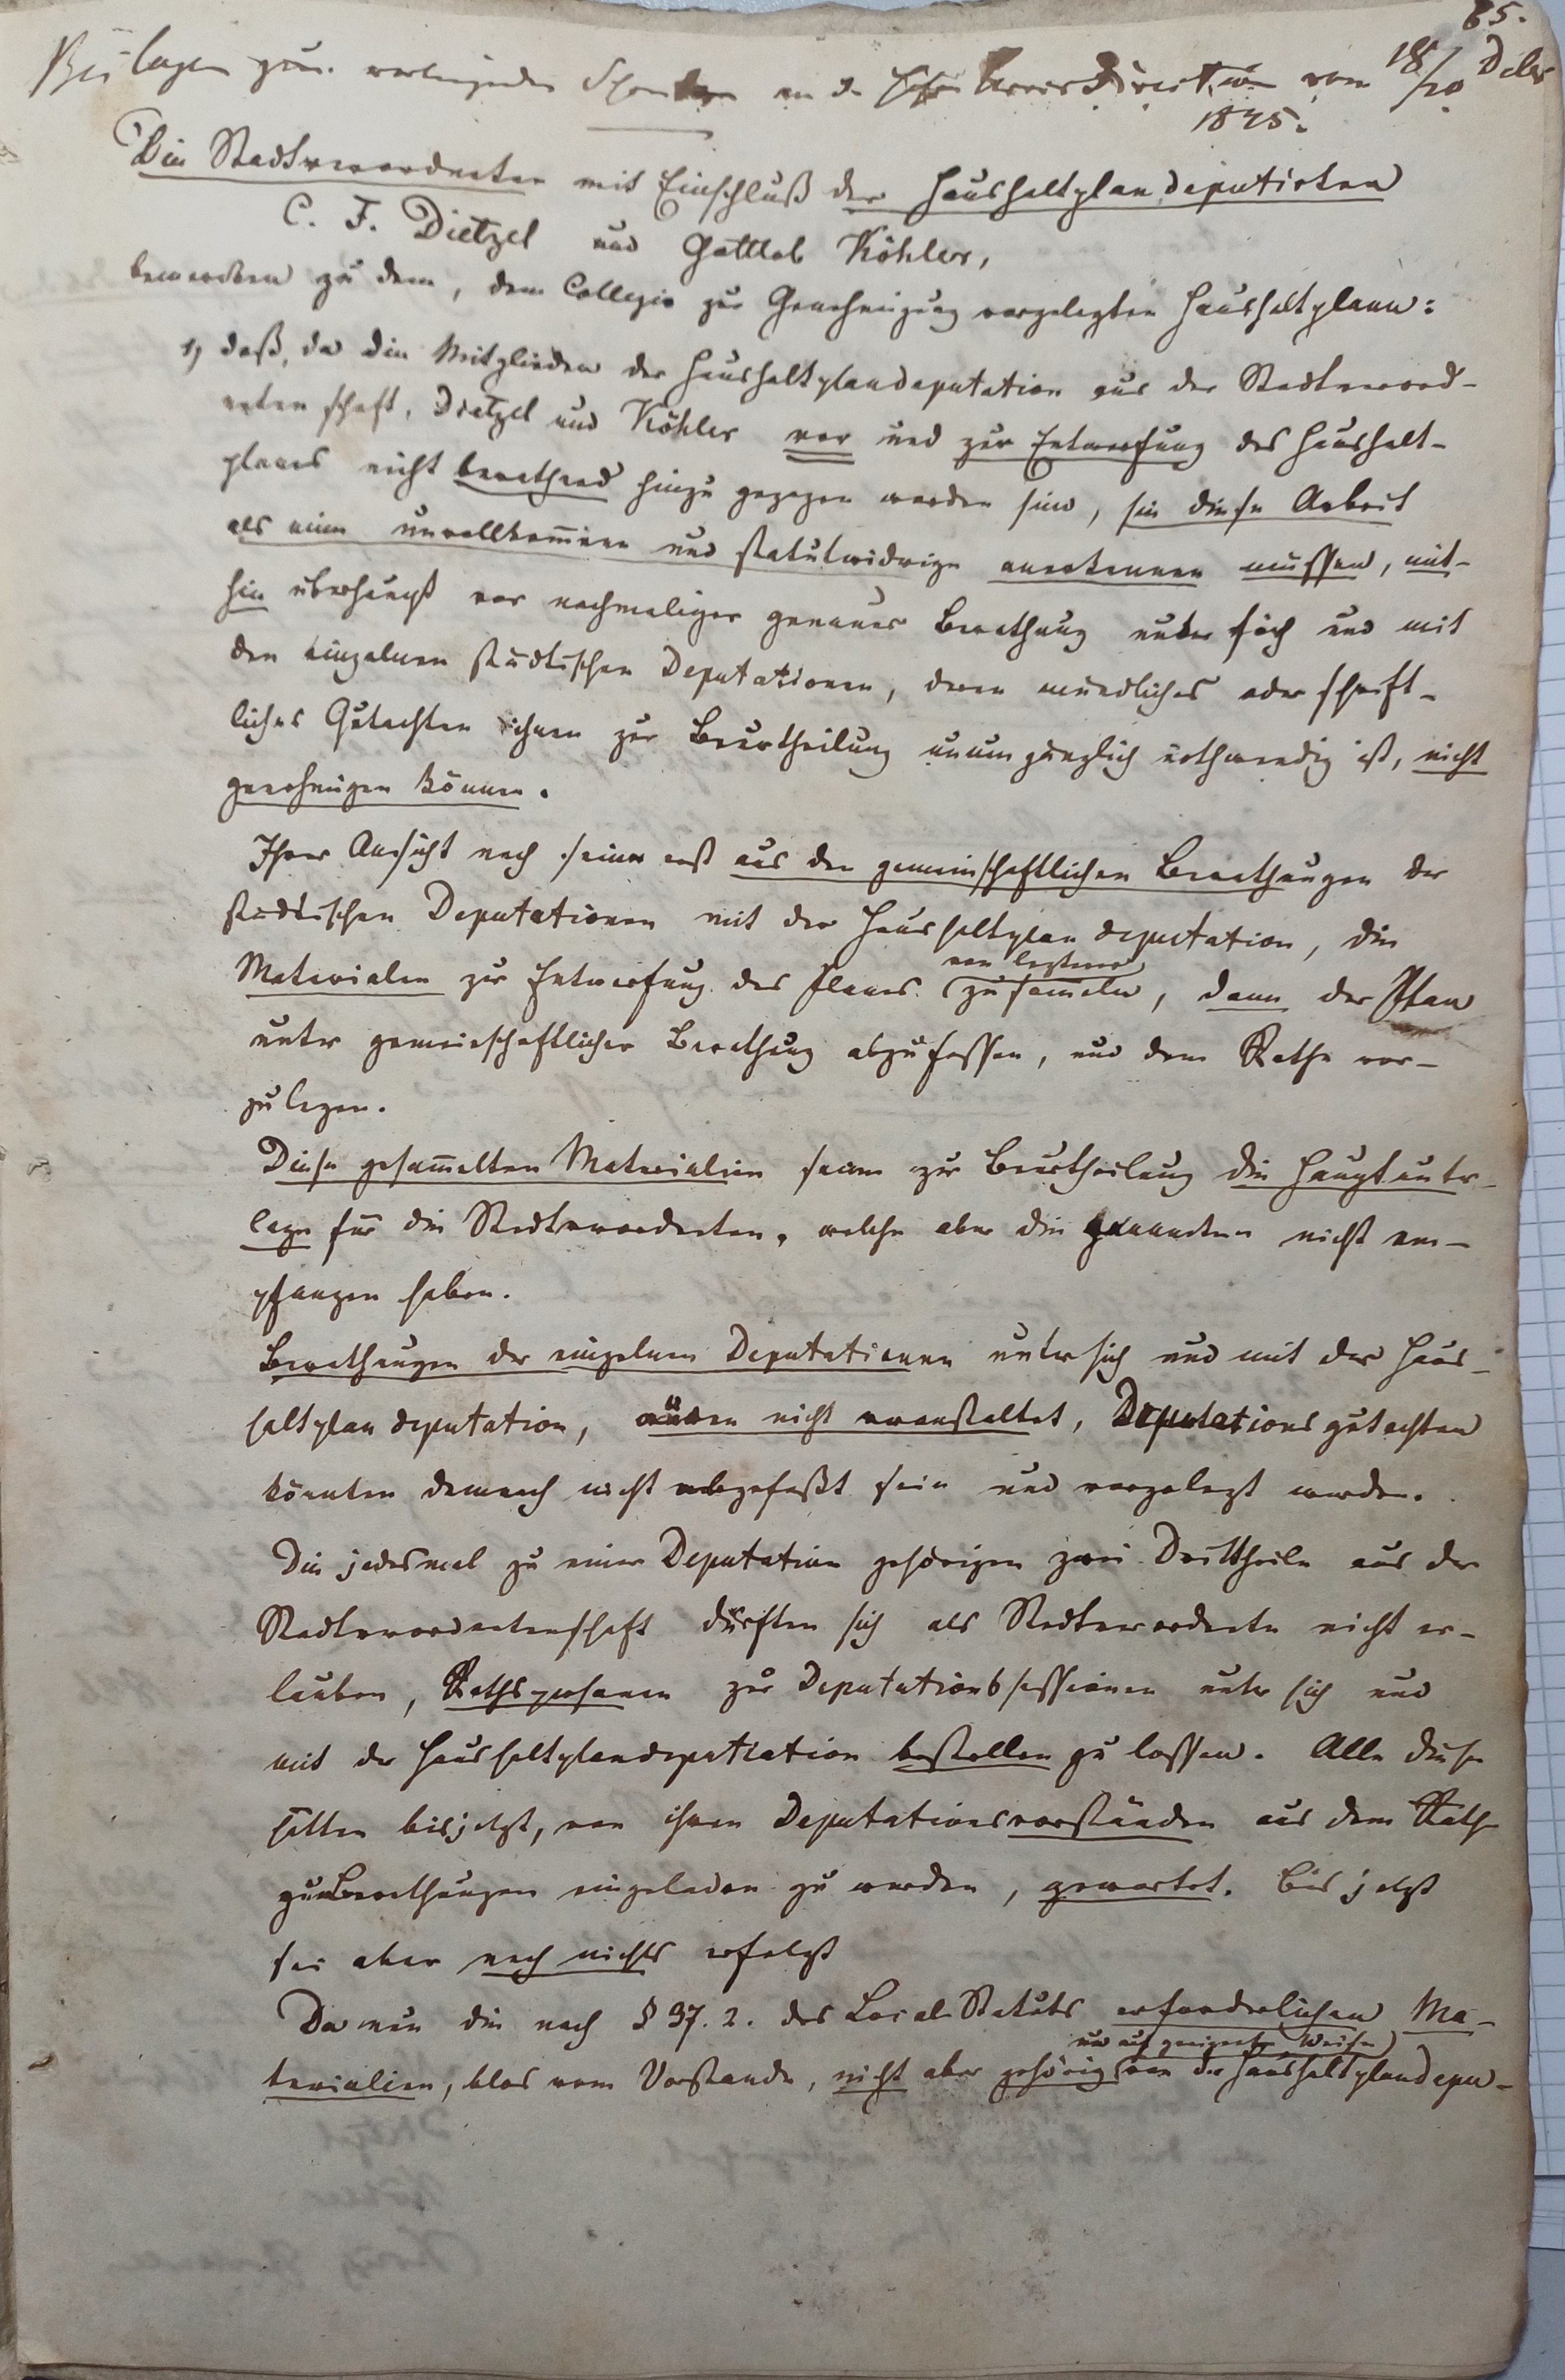 65.
Beilagen zum vorliegenden Schreiben an d. hohe Kreisdirection vom 18/20 Decbr
1835.
Die Stadtverordneten mit Einschluß der Haushaltplandeputirten
C. F. Dietzel und Gottlob Köhler,
bemerken zu dem, dem Collegio zur Genehmigung vorgelegten Haushaltplane:
1) daß, da die Mitglieder der Haushaltplandeputation aus der Stadtverord-
netenschaft, Dietzel und Köhler vor und zur Entwerfung des Haushalt-
planes nicht berathend hinzu gezogen worden sind, sie diese Arbeit
als eine unvollkom̄ene und statutwidrige anerkennen müssen, mit-
hin überhaupt vor nochmaliger genauer Berathung unter sich und mit
den einzelnen städtischen Deputationen, deren mündliches oder schrift-
liches Gutachten ihnen zur Beurtheilung unumgänglich nothwendig ist, nicht
genehmigen können.
Ihrer Ansicht nach seien erst aus den gemeinschaftlichen Berathungen der
städtischen Deputationen mit der Haushaltplandeputation, die
von letzterer
Materialen zur Entwerfung des Planes zu sam̄eln, dann der Plan
unter gemeinschaftlicher Berathung abzufassen, und dem Rathe vor-
zulegen.
Diese gesam̄elten Materialien seien zur Beurtheilung die Hauptunter-
lage für die Stadtverordneten, welche aber die genannten nicht em-
pfangen haben.
Berathungen der einzelnen Deputationen unter sich und mit der Haus-
haltplandeputation, wären nicht veranstaltet, Deputationsgutachten
könnten demnach nicht abgefaßt sein und vorgelegt werden.
Die jedesmal zu einer Deputation gehörigen zwei Drittheile aus der
Stadtverordnetenschaft dürften sich als Stadtverordnete nicht er-
lauben, Rathspersonen zur Deputationssessionen unter sich und
mit der Haushaltplandeputation bestellen zu lassen. Alle diese
hätten bis jetzt, von ihren Deputationsvorständen aus dem Rathe
zum Berathungen eingeladen zu werden, gewartet. Bis jetzt
sei aber noch nichts erfolgt
Da nun die nach § 37. 2. des Local Statuts erforderlichen Ma-
und auf geeignete Weise
terialien, blos vom Vorstande, nicht aber gehörig von der Haushaltplandepu-